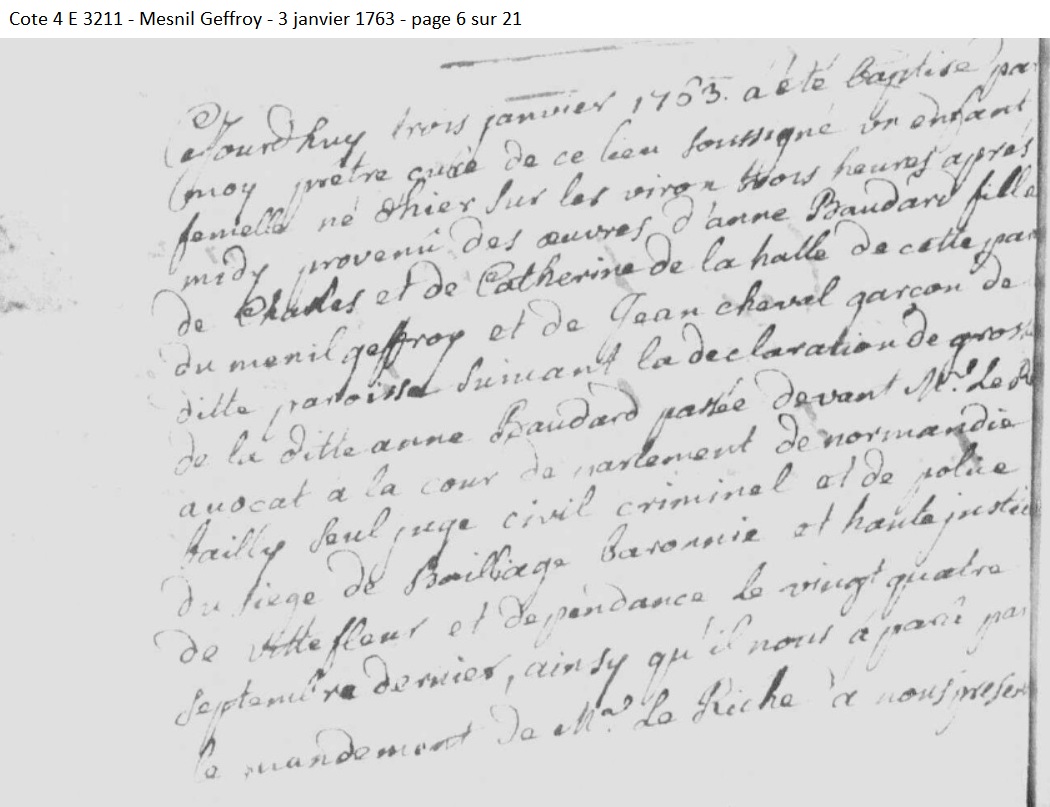 Cote 4 E 3211 - Mesnil Geffroy - 3 janvier 1763 - page 6 sur 21
Cejourdhuy trois janvier 1763. a eté baptisé pa
moy prêtre curé de ce lieu soussigné un enfant
femelle né d'hier sur les viron trois heures apres
midy provenû des œuvres d'anne Baudard fille
de Charles et de Catherine de la halle de cette par
du menil geffroy et de Jean cheval garcon de
ditte paroisse suivant la declaration de gross
de la ditte anne Baudard passée devant Mr. Le
avocat a la cour de parlement de normandie
bailly seul juge civil criminel et de police
du siege de Bailliage baronnie et haute justi
de vittefleur et dependance le vingt quatre
septembre dernier, ainsy qu'il nous a parû par
le mandement de Mr. Le Riche a nous presen